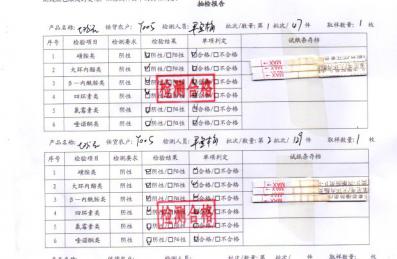 抽检报告
产品名称: 供货农户: 7005 检测人员: 批次/数量:第 1 批次/ 47 件 取样数量: 1 枚
序号 检验项目 检测要求 检验结果 单项判定 试纸条存档
1 磺胺类 阴性 ☑阴性/□阳性 ☑合格/□不合格
2 大环内酯类 阴性 ☑阴性/□阳性 ☑合格/□不合格
3 β-内酰胺类 阴性 ☑阴性/□阳性 ☑合格/□不合格
4 四环素类 阴性 ☑阴性/□阳性 ☑合格/□不合格
5 氟霉素类 阴性 ☑阴性/□阳性 ☑合格/□不合格
6 喹诺酮类 阴性 ☑阴性/□阳性 ☑合格/□不合格
检测合格
MAX
MAX
产品名称: 供货农户: 7005 检测人员: 批次/数量:第 2 批次/ 件 取样数量: 1 枚
序号 检验项目 检测要求 检验结果 单项判定 试纸条存档
1 磺胺类 阴性 ☑阴性/□阳性 ☑合格/□不合格
2 大环内酯类 阴性 ☑阴性/□阳性 ☑合格/□不合格
3 β-内酰胺类 阴性 ☑阴性/□阳性 ☑合格/□不合格
4 四环素类 阴性 ☑阴性/□阳性 ☑合格/□不合格
5 氟霉素类 阴性 ☑阴性/□阳性 ☑合格/□不合格
6 喹诺酮类 阴性 ☑阴性/□阳性 ☑合格/□不合格
检测合格
MAX
MAX